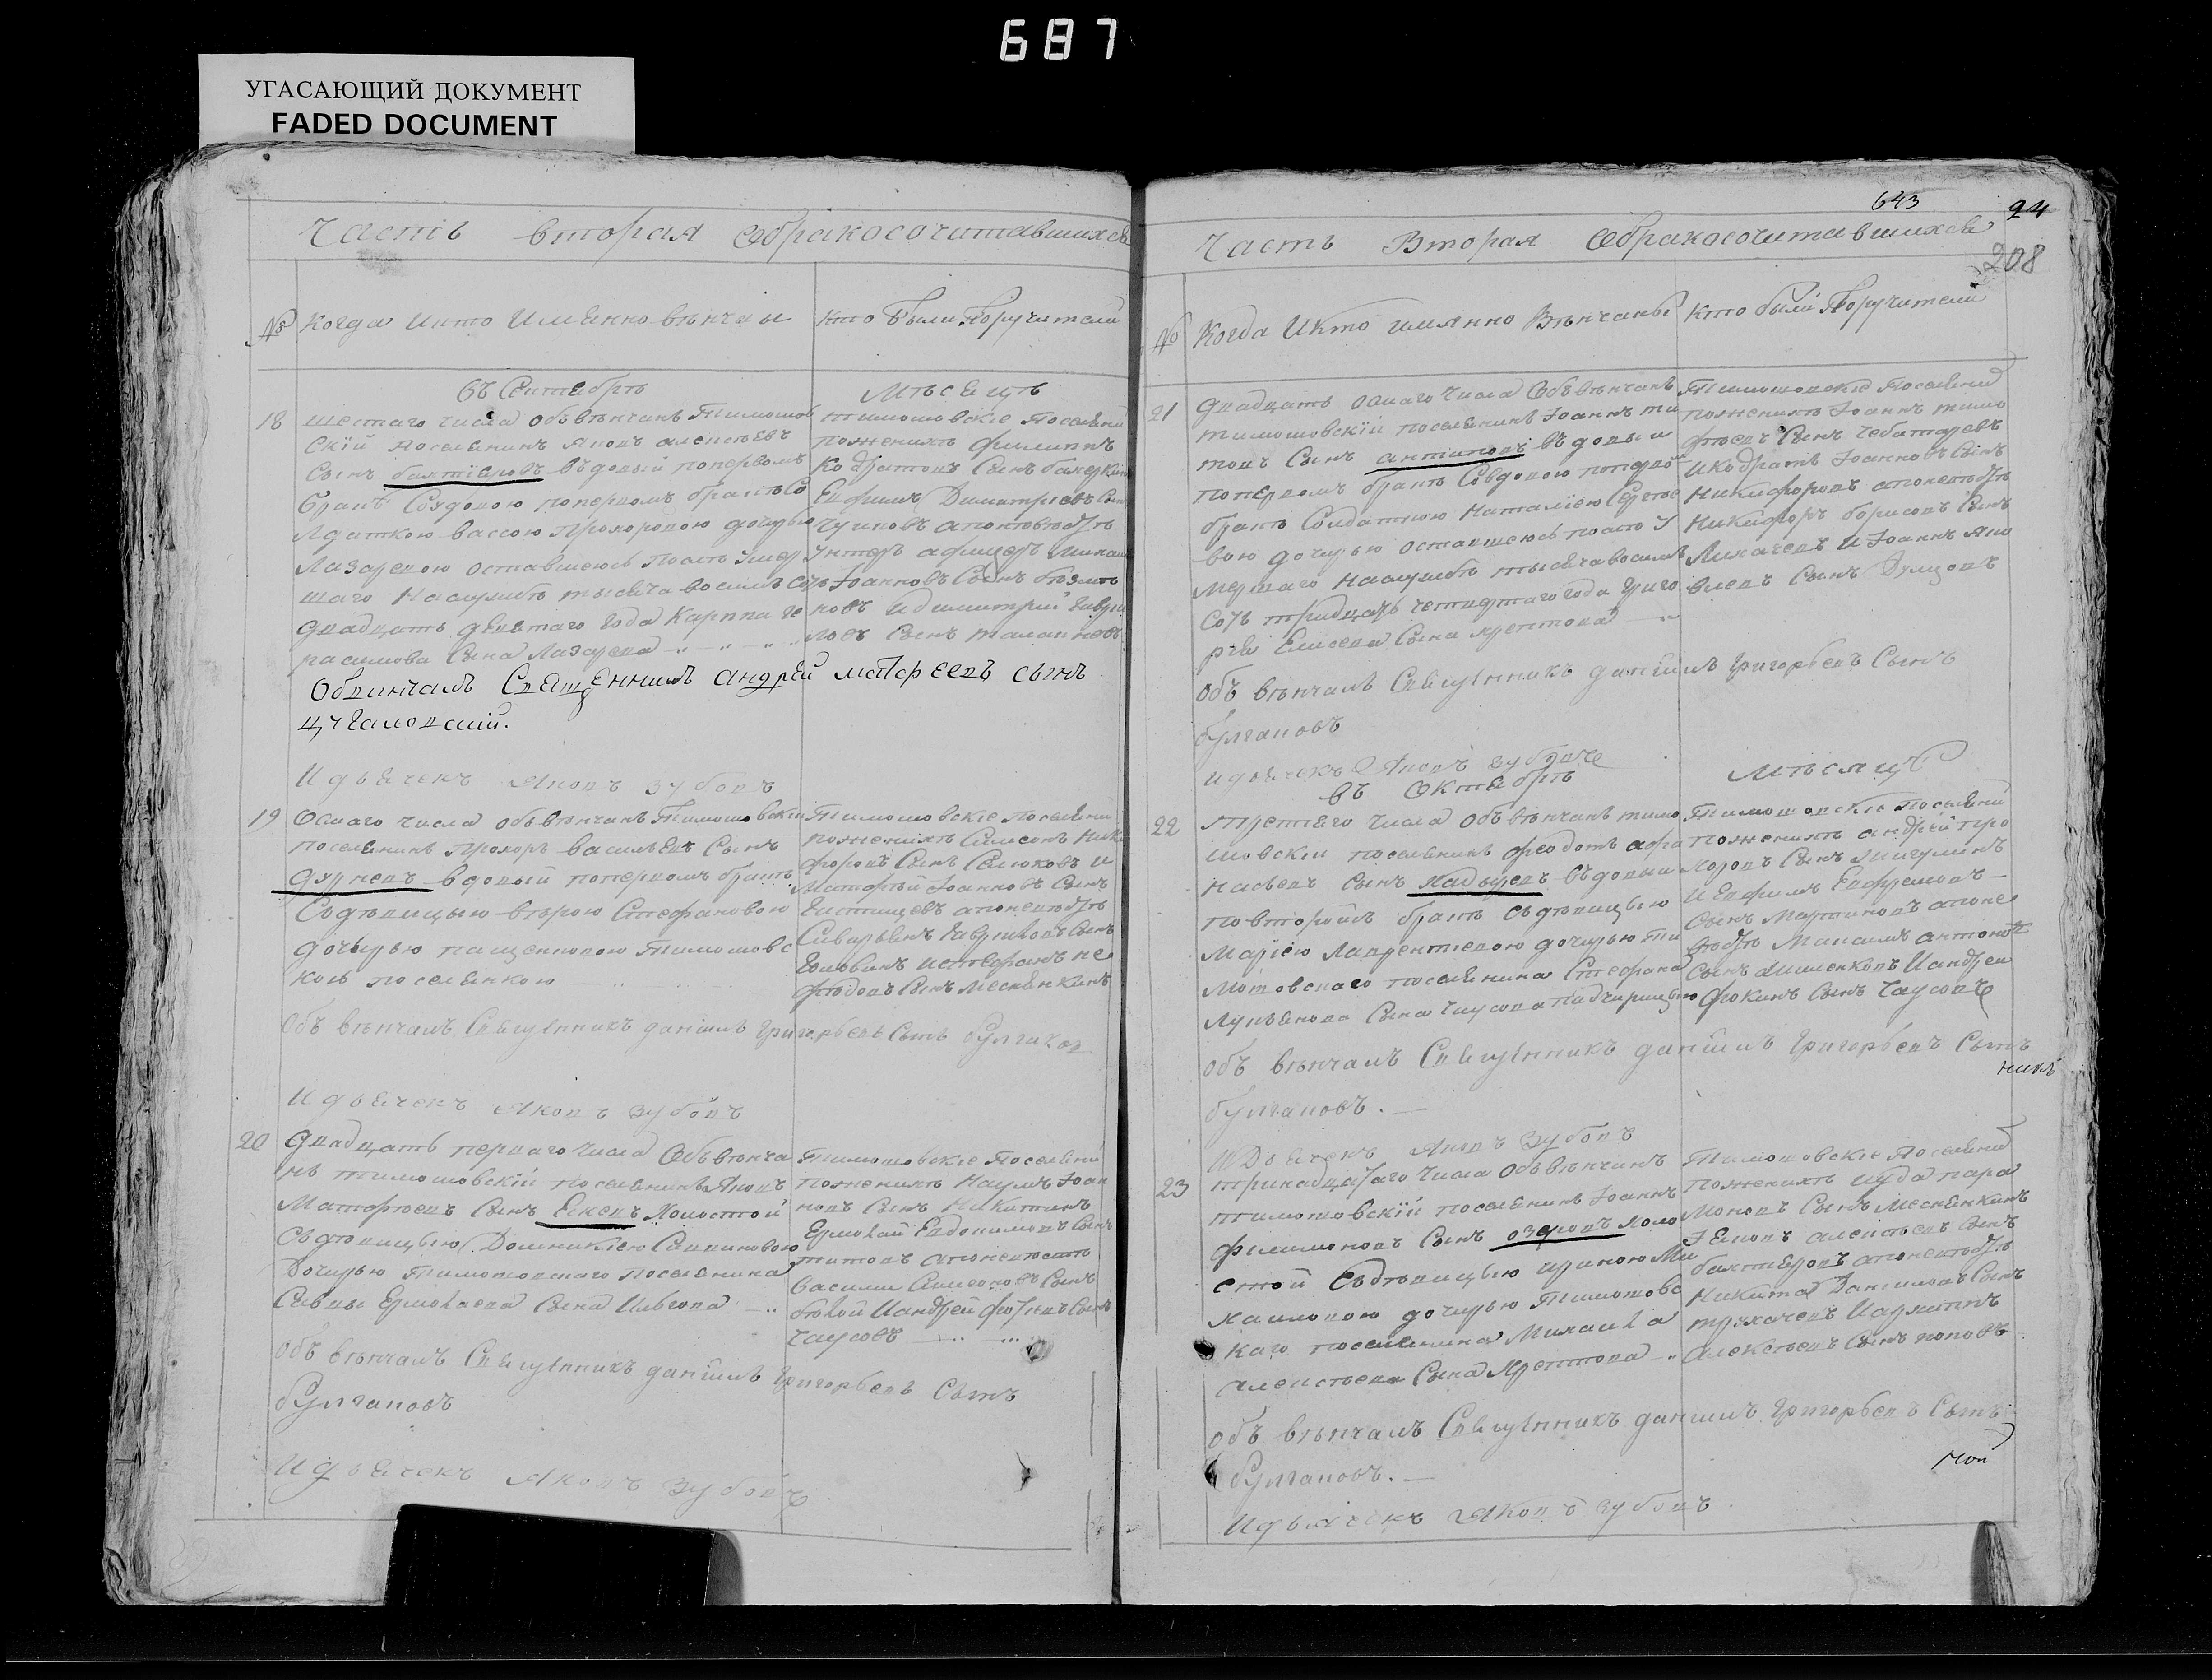 687
УГАСАЮЩИЙ ДОКУМЕНТ
FADED DOCUMENT
Часть вторая обракосочитавшихся
№ Когда и кто имянно венчаны
кто были поручители
въ Сентябрѣ
Мѣсяцѣ
18
шестаго числа обвѣнчанъ Тимошов
скій поселянинъ Яковъ алексѣевъ
сынъ бахтіяровъ вдовый по первомъ
бракѣ со вдовою по первомъ бракѣ со
лдаткою вассою Прохоровою дочерью
Лазаревою оставшеюсь послѣ умер
шаго на службѣ тысяча восимъ сотъ
двадцать девятаго года Карпа Ге
расимова сына Лазарева
тимошовскіе поселяни
по женихѣ филиппъ
Кодратовъ сынъ
Ефимъ Димитріевъ сынъ
чуриковъ а по невѣстѣ
унтеръ афицеръ
Іоанновъ сынъ
и димитрий Гаври
ловъ сынъ
Обвинчалъ Священникъ андрей матфеевъ сынъ
цугаловский.
И дьячекъ Яковъ зубовъ
19
Осмаго числа обвѣнчанъ Тимошовскій
поселянинъ Прохоръ васильевъ сынъ
дурневъ вдовый по первомъ бракѣ
съ дѣвицыю вѣрою Стефановою
дочерью пащенковою Тимошовс
кою поселянкою
Тимошовскіе поселяни
по женихѣ Симеонъ Ники
форовъ сынъ Селюковъ и
Матфѣй Іоанновъ сынъ
Чистищевъ а по невѣстѣ
Северьянъ Гавриловъ сынъ
Головинъ и Стефанъ не
фѣдовъ сынъ Меснянкинъ
Обвѣнчалъ Священникъ даніилъ Григорьевъ сынъ булгаков
И дьячекъ Яковъ зубовъ
20
Двадцать перваго числа обвѣнча
нъ тимошовскій поселянинъ Яковъ
Матфѣевъ сынъ Еневъ холостой
съ дѣвицыю Домникіею Саввиновою
дочерью тимошовскаго поселянина
Саввы Ермолаева сына Ивлева
Тимошовскіе поселяни
по женихѣ Наумъ Іоан
новъ сынъ Никитинъ
Ермолай Евдокимовъ сынъ
титовъ а по невѣстѣ
василий Симеоновъ сынъ
и андрей фотеевъ сынъ
чаусовъ
Обвѣнчалъ Священникъ даніилъ Григорьевъ сынъ
булгаковъ
И дьячекъ Яковъ зубовъ
643
24
208
Часть Вторая обракосочитавшихся
№ Когда и кто имянно вѣнчаны
кто были поручители
21
Двадцать осмаго числа обвѣнчанъ
тимошовскій поселянинъ Іоаннъ ти
товъ сынъ антиповъ вдовыи
по первомъ бракѣ со вдовою по первом
бракѣ солдаткою Наталіею Сергѣе
вою дочерью оставшеюсь послѣ у
мершаго на службѣ тысяча восимъ
сотъ тридцать четвертаго года Григо
рія Елисеева сына
Тимошовскіе поселяни
по женихѣ Іоаннъ тимо
фѣевъ сынъ чеботаревъ
и кодратъ Іоанновъ сынъ
Никифоровъ а по невѣстѣ
Никифоръ борисовъ сынъ
Лихачевъ и Іоаннъ Яко
влевъ сынъ
Обвѣнчалъ Священникъ даніилъ Григорьевъ сынъ
булгаковъ
и дьячекъ Яковъ зубовъ
въ Октябрѣ
Мѣсяцѣ
22
третьего числа обвѣнчанъ тимо
шовскіи поселянинъ феодотъ афа
насьевъ сынъ вдовыи
по второмъ бракѣ съ дѣвицыю
Маріею Лаврентіевою дочерью ти
мошовскаго поселянина Стефана
Лукьянова сына Чаусова падчерицыю
Тимошовскіе поселяни
по женихѣ андрей про
хоровъ сынъ Мигулинъ
и Ефимъ Ефремовъ
сынъ Мартиновъ а по не
вѣстѣ Максимъ антоновъ
сынъ и андрей
фокинъ сынъ Чаусовъ
Обвѣнчалъ Священникъ даніилъ Григорьевъ сынъ
никъ
булгаковъ.
И Дьячекъ Яковъ зубовъ
23
тринадцатаго числа обвѣнчанъ
тимошовскій поселянинъ Іоаннъ
филимоновъ сынъ озеровъ холо
стой съ дѣвицыю ириною Ми
хаиловою дочерью Тимошовс
каго поселянина Михаила
алексѣева сына
Тимошовскіе поселяни
по женихѣ иуда пара
моновъ сынъ Меснянкинъ
алексѣевъ сынъ
бахтіяровъ а по невѣстѣ
Никита Даниловъ сынъ
и архиппъ
алексѣевъ сынъ поповъ
Обвѣнчалъ Священникъ даніилъ Григорьевъ сынъ
булгаковъ.
И дьячекъ Яковъ зубовъ